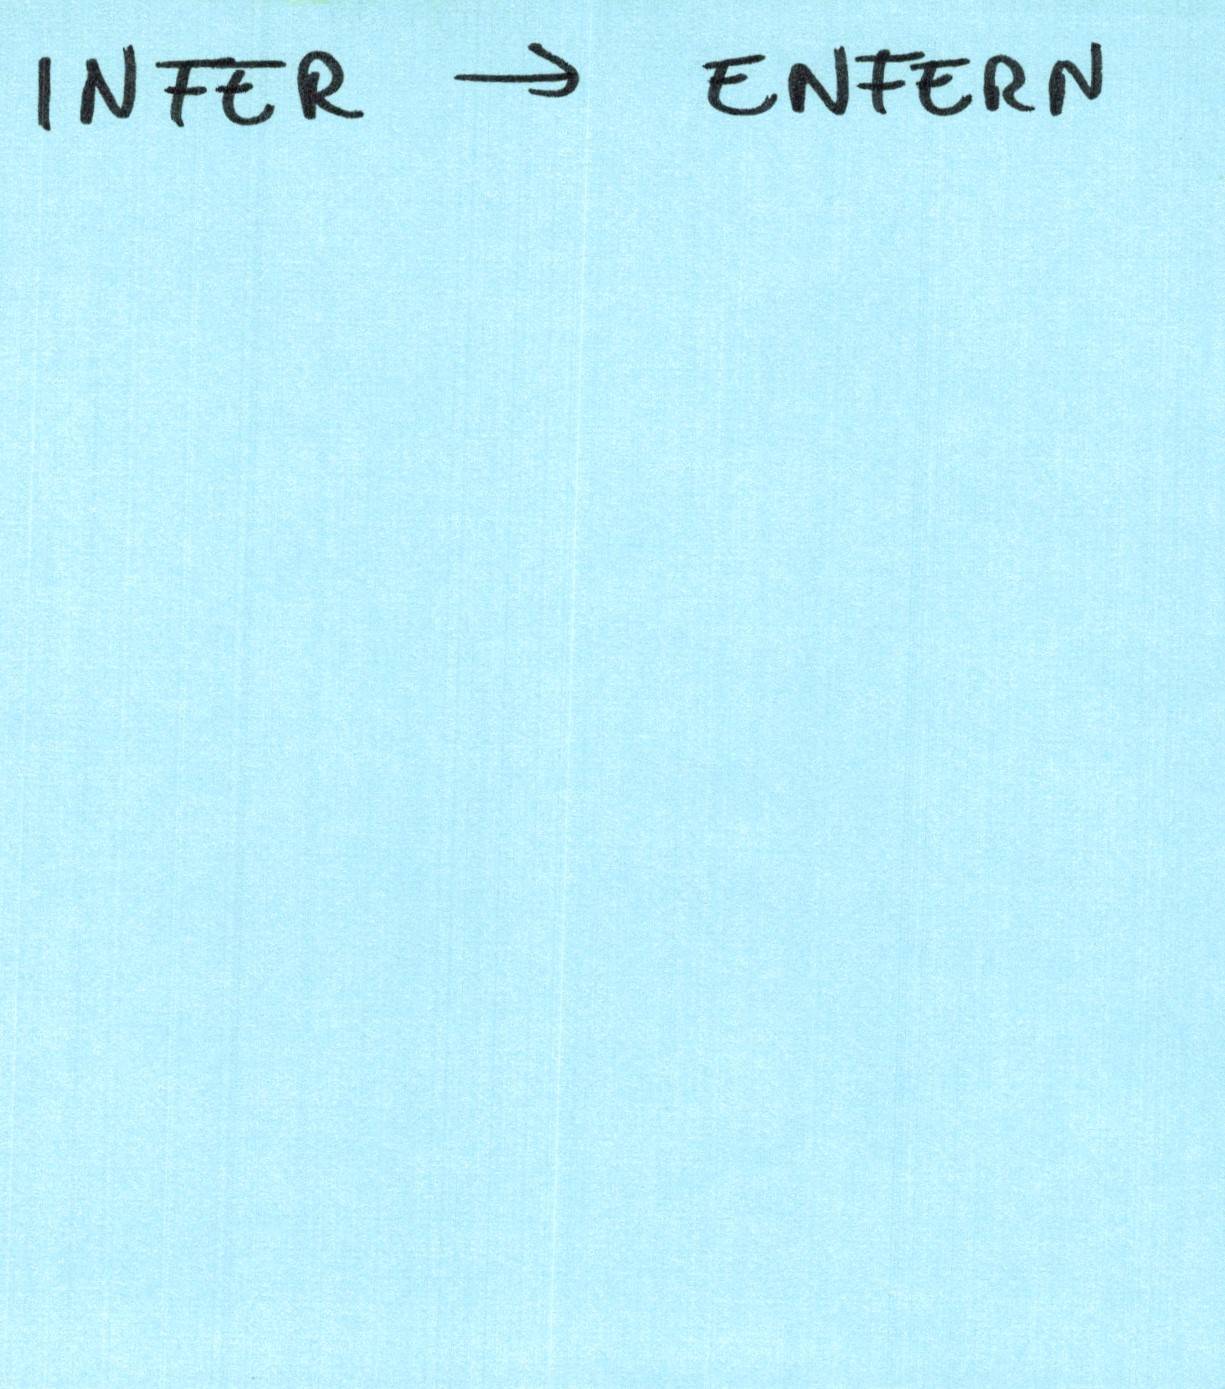 INFER → ENFERN